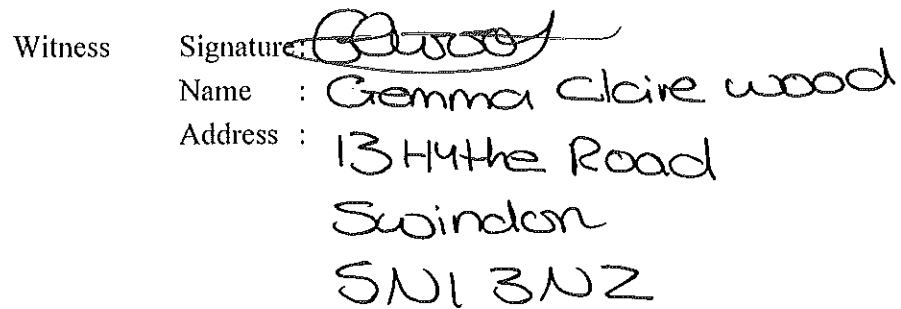 Witness Signature: GCWood
Name : Gemma Claire Wood
Address : 13 Hythe Road
Swindon
SN1 3NZ